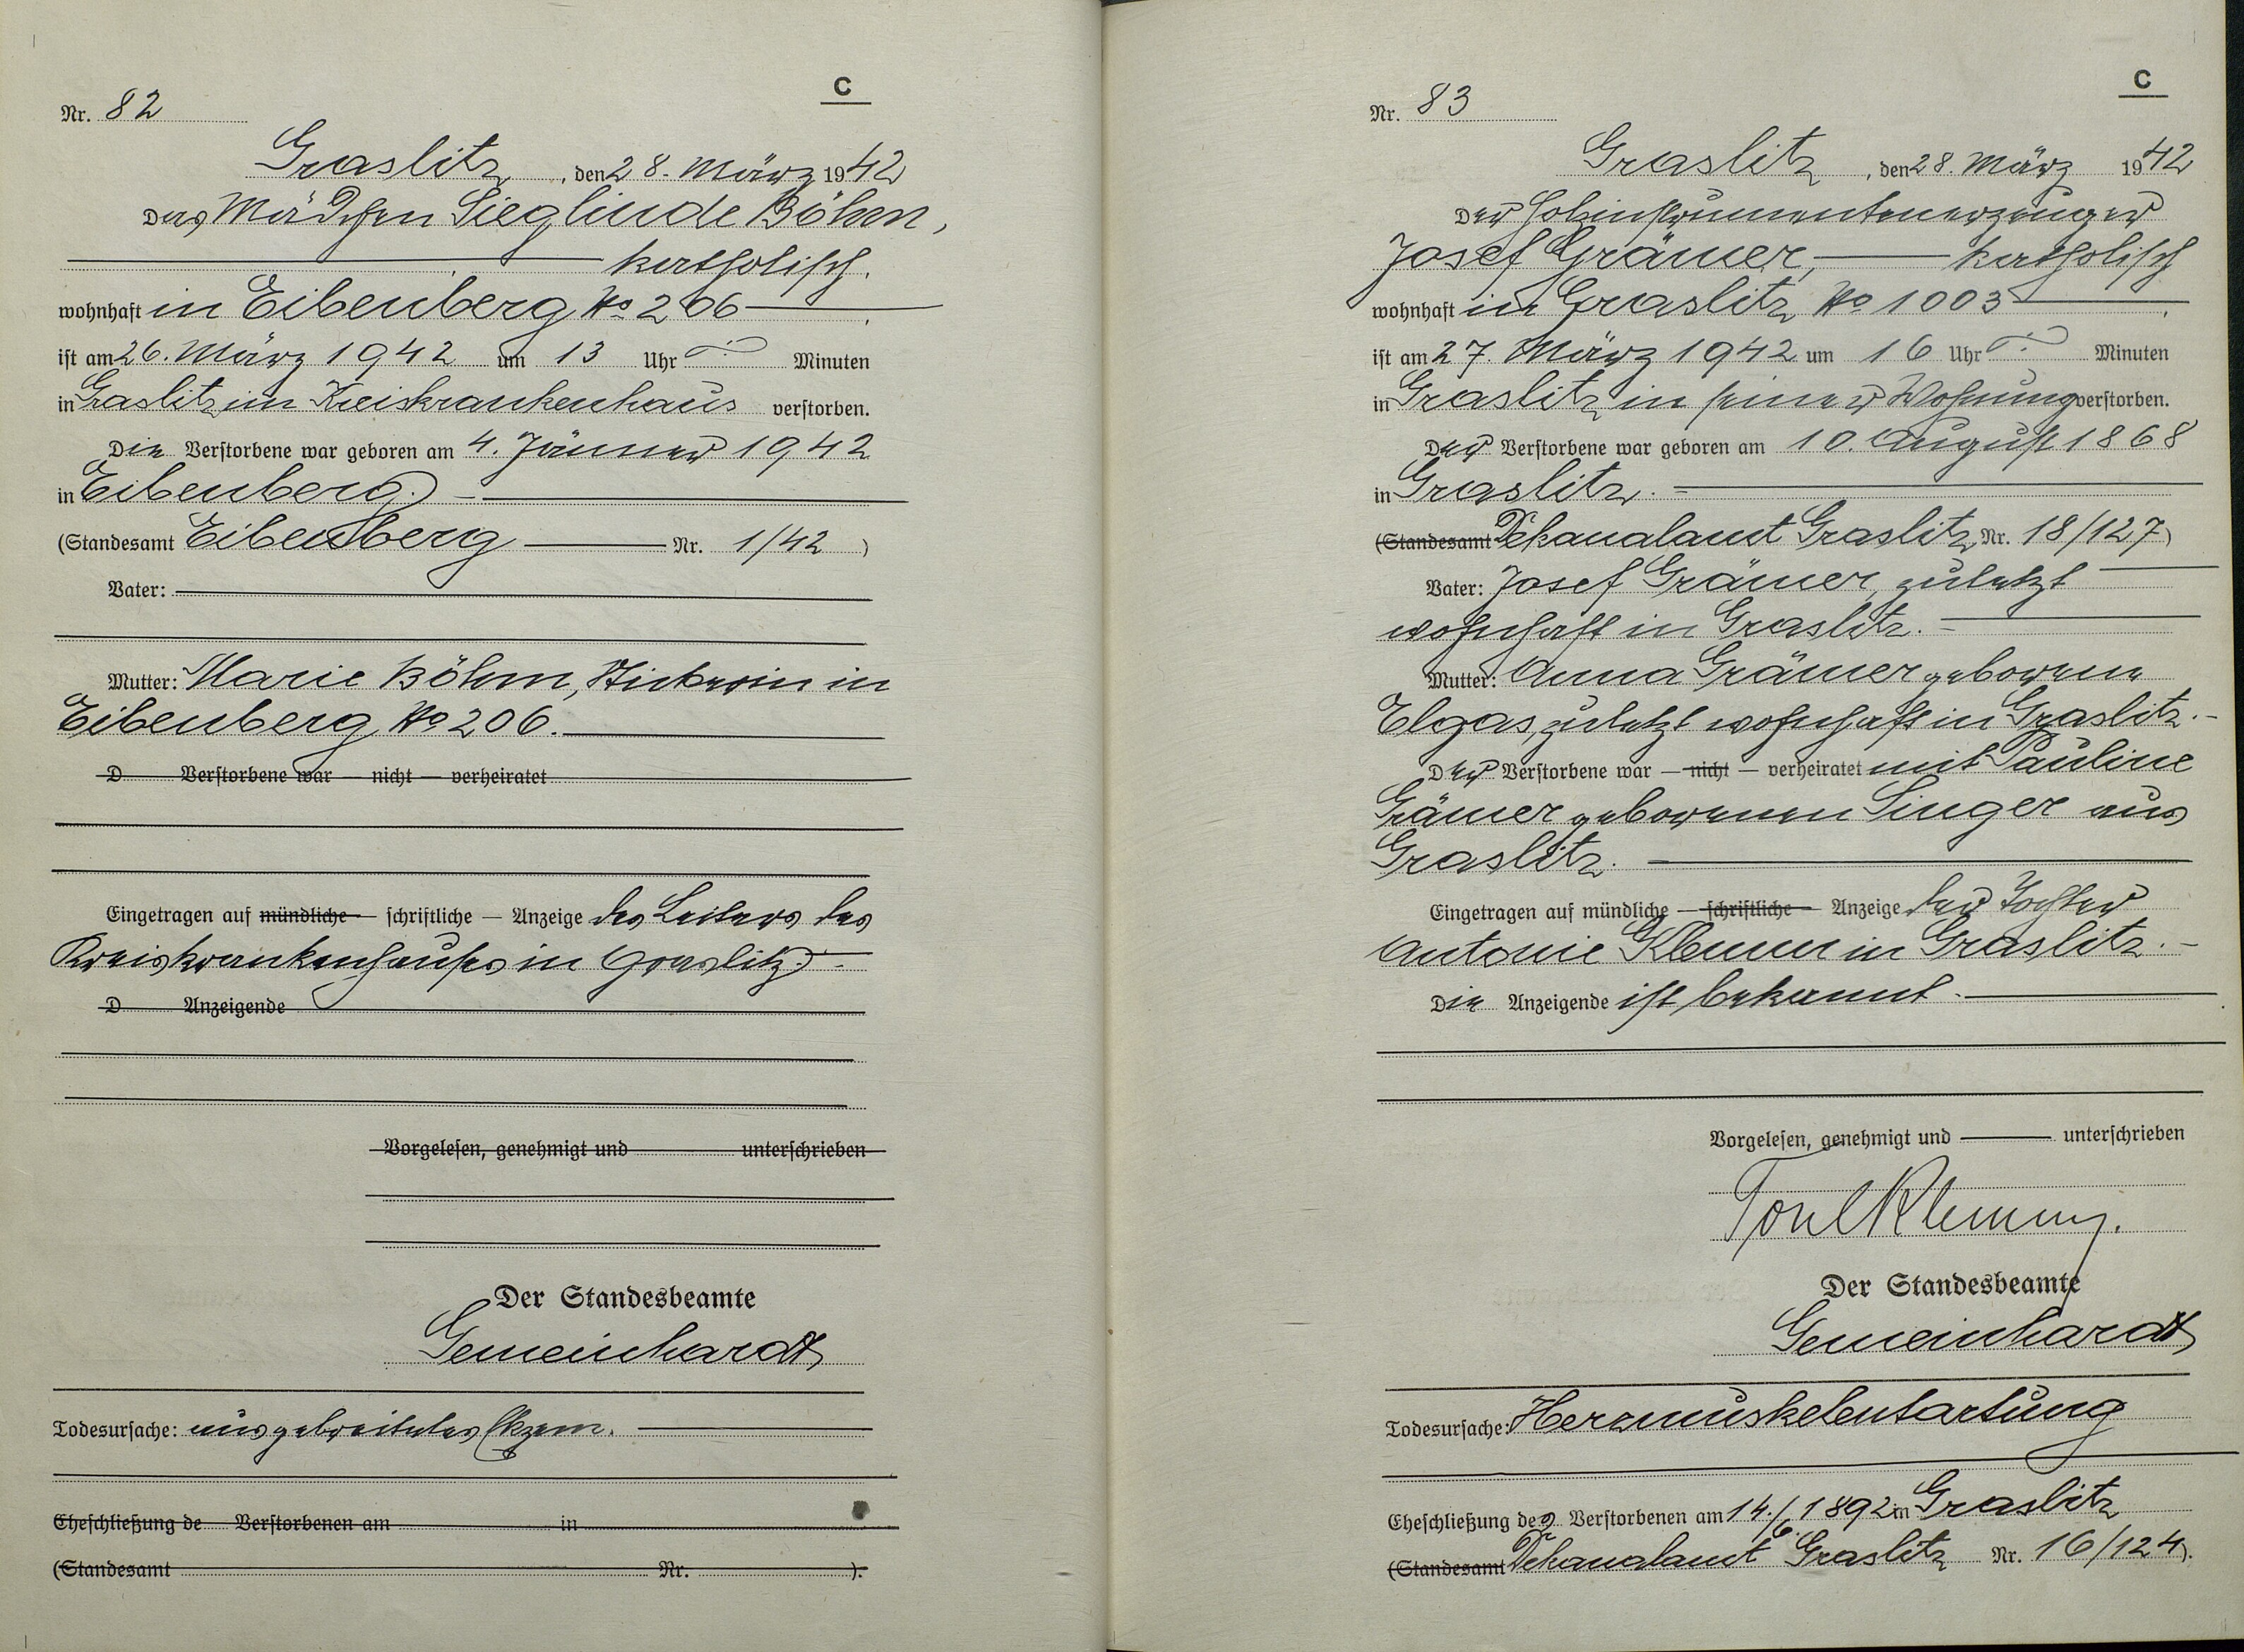 C
Nr. 82
Graslitz, den 28. März 1942
Das Mädchen Sieglinde Böhm,
katholisch.
wohnhaft in Eibenberg No 206
ist am 26. März 1942 um 13 Uhr Minuten
in Graslitz im Kreiskrankenhaus verstorben.
Die Verstorbene war geboren am 4. Jänner 1942
in Eibenberg.
(Standesamt Eibenberg Nr. 1/42)
Vater:
Mutter: Marie Böhm, Stickerin in
Eibenberg No 206.
D Verstorbene war — nicht — verheiratet
Eingetragen auf mündliche — schriftliche — Anzeige des Leiters des
Kreiskrankenhauses in Graslitz.
D Anzeigende
Vorgelesen, genehmigt und unterschrieben
Der Standesbeamte
Gemeinhardt
Todesursache: ausgebreitetes Ekzem.
Eheschließung de Verstorbenen am in
(Standesamt Nr. ).
C
Nr. 83
Graslitz, den 28. März 1942
Der Holzinstrumentenerzeuger
Josef Grämer, katholisch
wohnhaft in Graslitz No 1003
ist am 27. März 1942 um 16 Uhr Minuten
in Graslitz in seiner Wohnung verstorben.
Der Verstorbene war geboren am 10. August 1868
in Graslitz.
(Standesamt Dekanalamt Graslitz Nr. 18/127)
Vater: Josef Grämer, zuletzt
wohnhaft in Graslitz.
Mutter: Anna Grämer geborene
Elgas, zuletzt wohnhaft in Graslitz.
Der Verstorbene war — nicht — verheiratet mit Pauline
Grämer geborenen Singer aus
Graslitz.
Eingetragen auf mündliche — schriftliche — Anzeige der Tochter
Antonie Klemm in Graslitz.
Die Anzeigende ist bekannt.
Vorgelesen, genehmigt und unterschrieben
Klemm.
Der Standesbeamte
Gemeinhardt
Todesursache: Herzmuskelentartung
Eheschließung des Verstorbenen am 14./6. 1892 in Graslitz
(Standesamt Dekanalamt Graslitz Nr. 16/124).